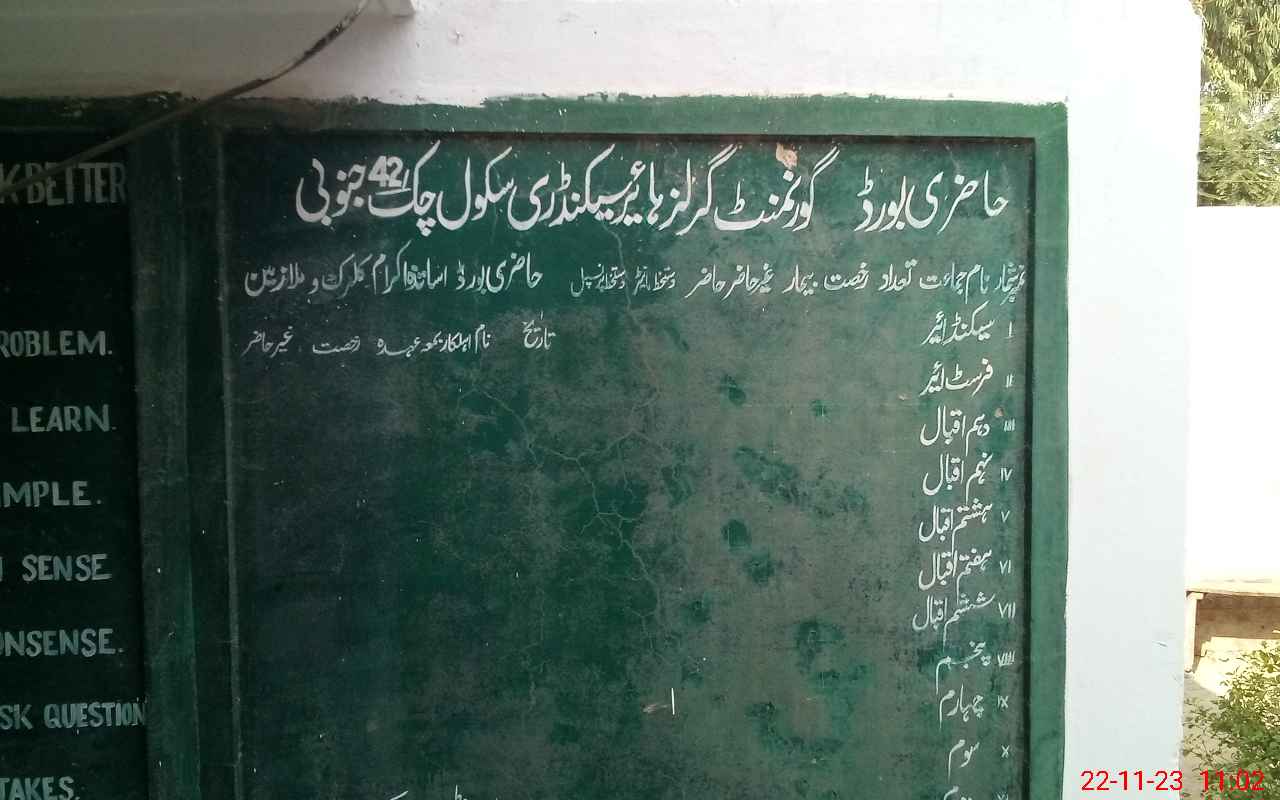 حاضری بورڈ گورنمنٹ گرلز ہائیر سیکنڈری سکول چک 42 جنوبی
نمبر شمار نام جماعت تعداد رخصت بیمار غیر حاضر حاضر دستخط انچارج دستخط پرنسپل
حاضری بورڈ اساتذہ اکرام کلرک و ملازمین
تاریخ نام اہلکار بمعہ عہدہ رخصت غیر حاضر
I سیکنڈ ائیر
II فرسٹ ائیر
III دہم اقبال
IV نہم اقبال
V ہشتم اقبال
VI ہفتم اقبال
VII ششم اقبال
VIII پنجم
IX چہارم
X سوم
K BETTER
ROBLEM.
LEARN.
IMPLE.
N SENSE
ONSENSE.
SK QUESTION
TAKES.
22-11-23 11:02